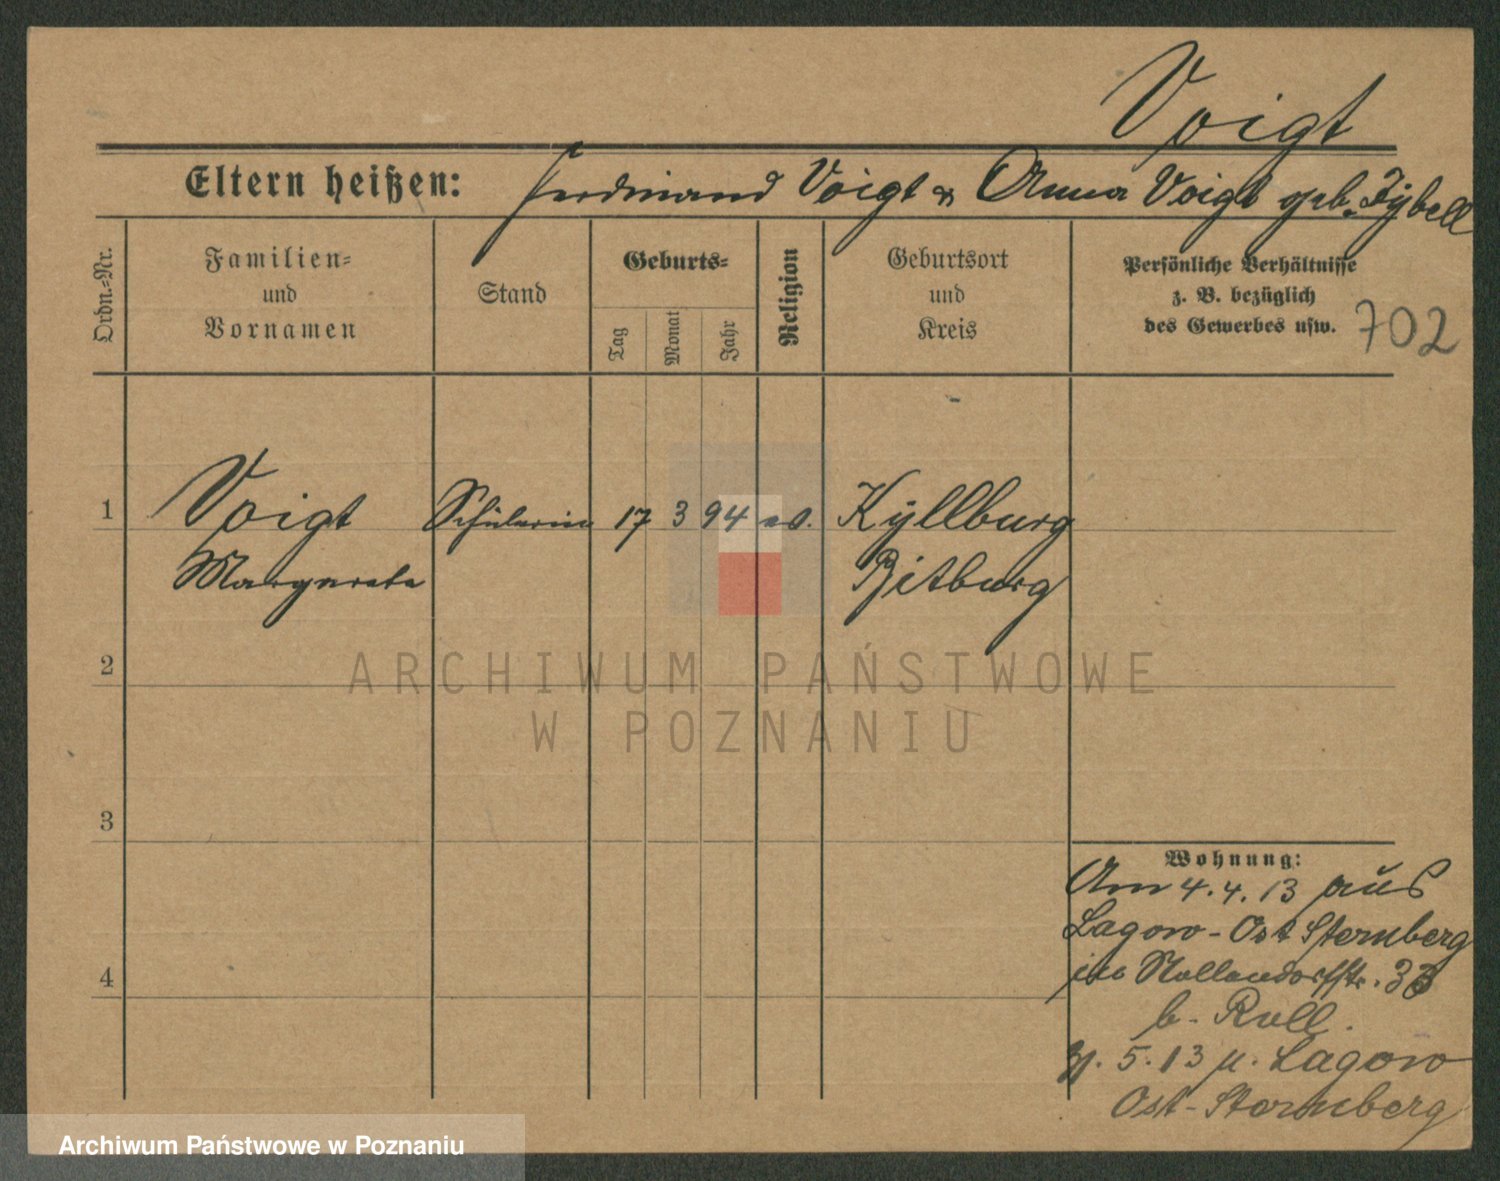 Voigt
Eltern heißen: Ferdinand Voigt & Anna Voigt geb. Zybell
Ordn.-Nr.
Familien-
und
Vornamen
Stand
Geburts-
Tag
Monat
Jahr
Religion
Geburtsort
und
Kreis
Persönliche Verhältnisse
z. B. bezüglich
des Gewerbes usw.
702
1 Voigt Schülerin 17 3 94 ev. Kyllburg
Margarete Bitburg
2
3
4
ARCHIWUM PAŃSTWOWE
W POZNANIU
Wohnung:
Am 4.4.13 aus
Lagow-Ost Sternberg
in Nollendorfstr. 33
b. Roll.
5.13 n. Lagow
Ost-Sternberg
Archiwum Państwowe w Poznaniu